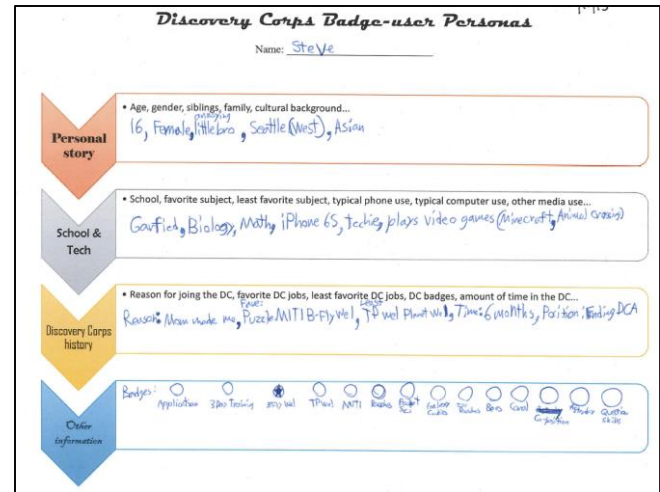 Discovery Corps Badge-user Personas
Name: Steve
Personal story
• Age, gender, siblings, family, cultural background...
annoying
16, Female, little bro, Seattle (West), Asian
School & Tech
• School, favorite subject, least favorite subject, typical phone use, typical computer use, other media use...
Garfied, Biology, Math, iPhone 6S, techie, plays video games (Minecraft, Animal Crossing)
Discovery Corps history
• Reason for joing the DC, favorite DC jobs, least favorite DC jobs, DC badges, amount of time in the DC...
Fave: Least
Reason: Mom made me, Puzzle MITI B-Fly Wel, TP wel Planet Wel, Time: 6 months, Position: Ending DCA
Other information
Badges:
Application 3Day Training Wel TP wel MITI Bers Coral Question Skills